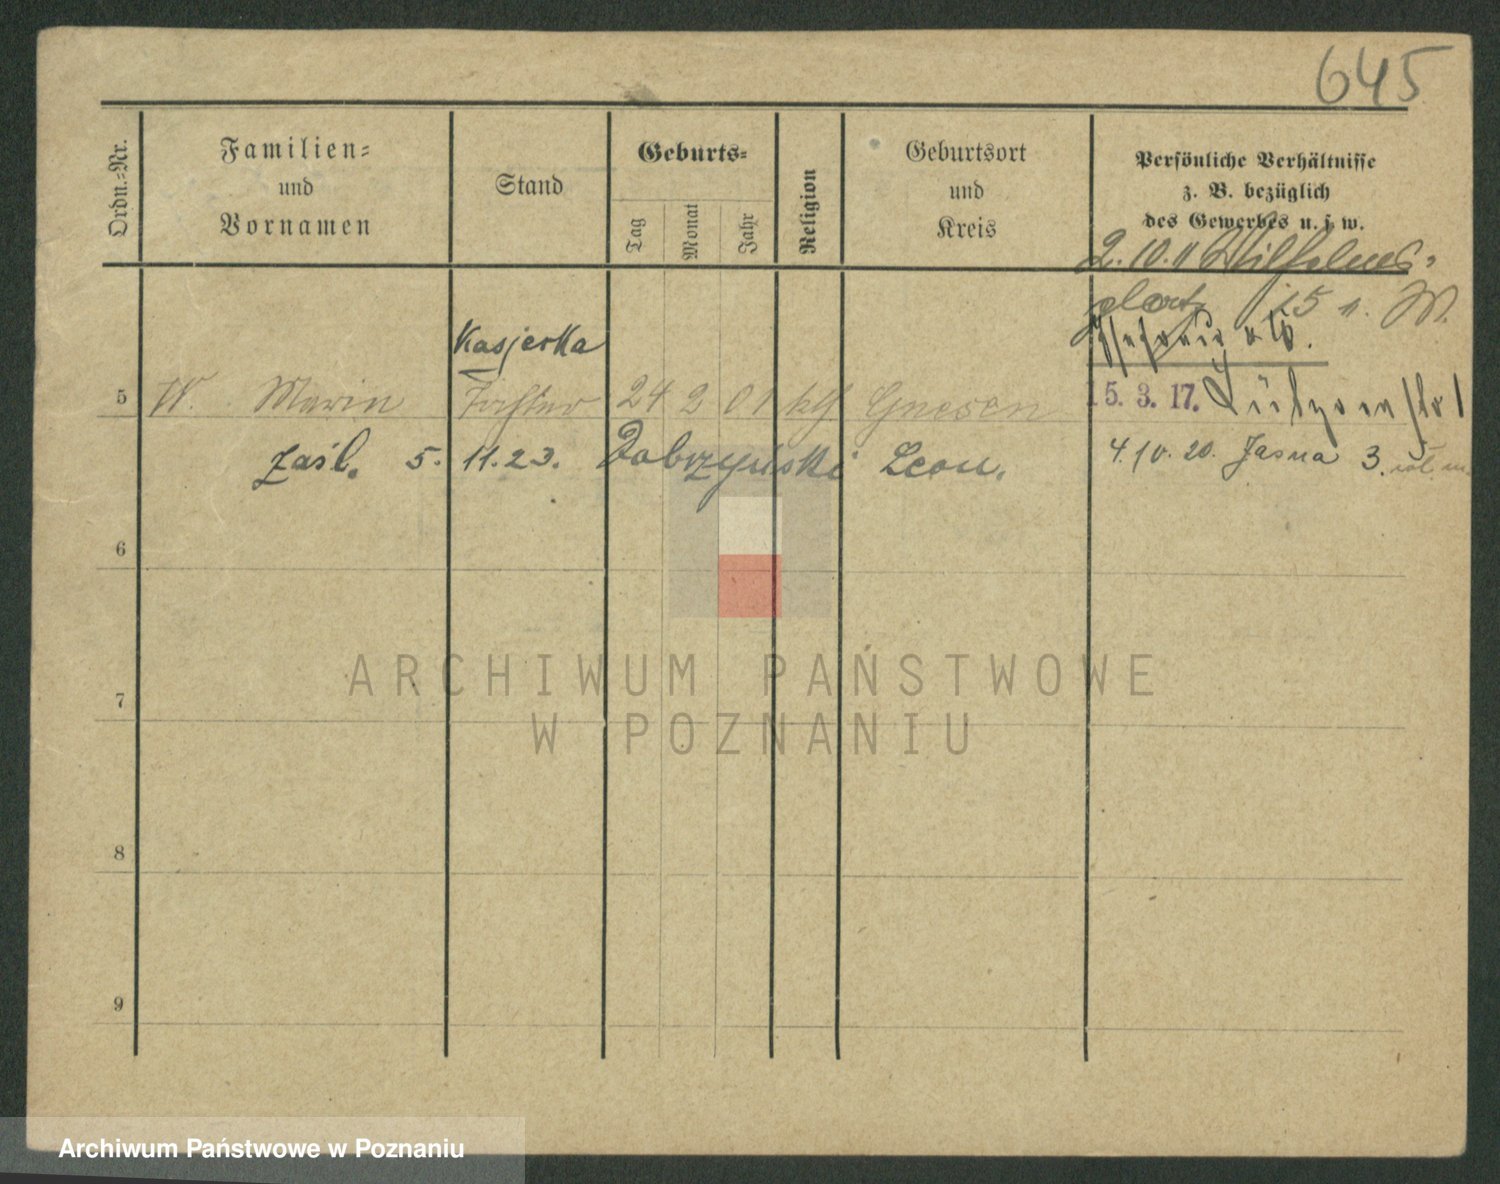 645
Ordn.-Nr.
Familien-
und
Vornamen
Stand
Geburts-
Tag
Monat
Jahr
Religion
Geburtsort
und
Kreis
Persönliche Verhältnisse
z. B. bezüglich
des Gewerbes u. s. w.
2. 10. 11 Wilhelms-
platz 15
Kasjerka
5 Tochter 24 2 01 kth Gnesen 15. 3. 17.
zaśl. 5. 11. 23. Dobrzyński Leon. 4. 10. 20. Jasna 3.
6
7
8
9
ARCHIWUM PAŃSTWOWE
W POZNANIU
Archiwum Państwowe w Poznaniu